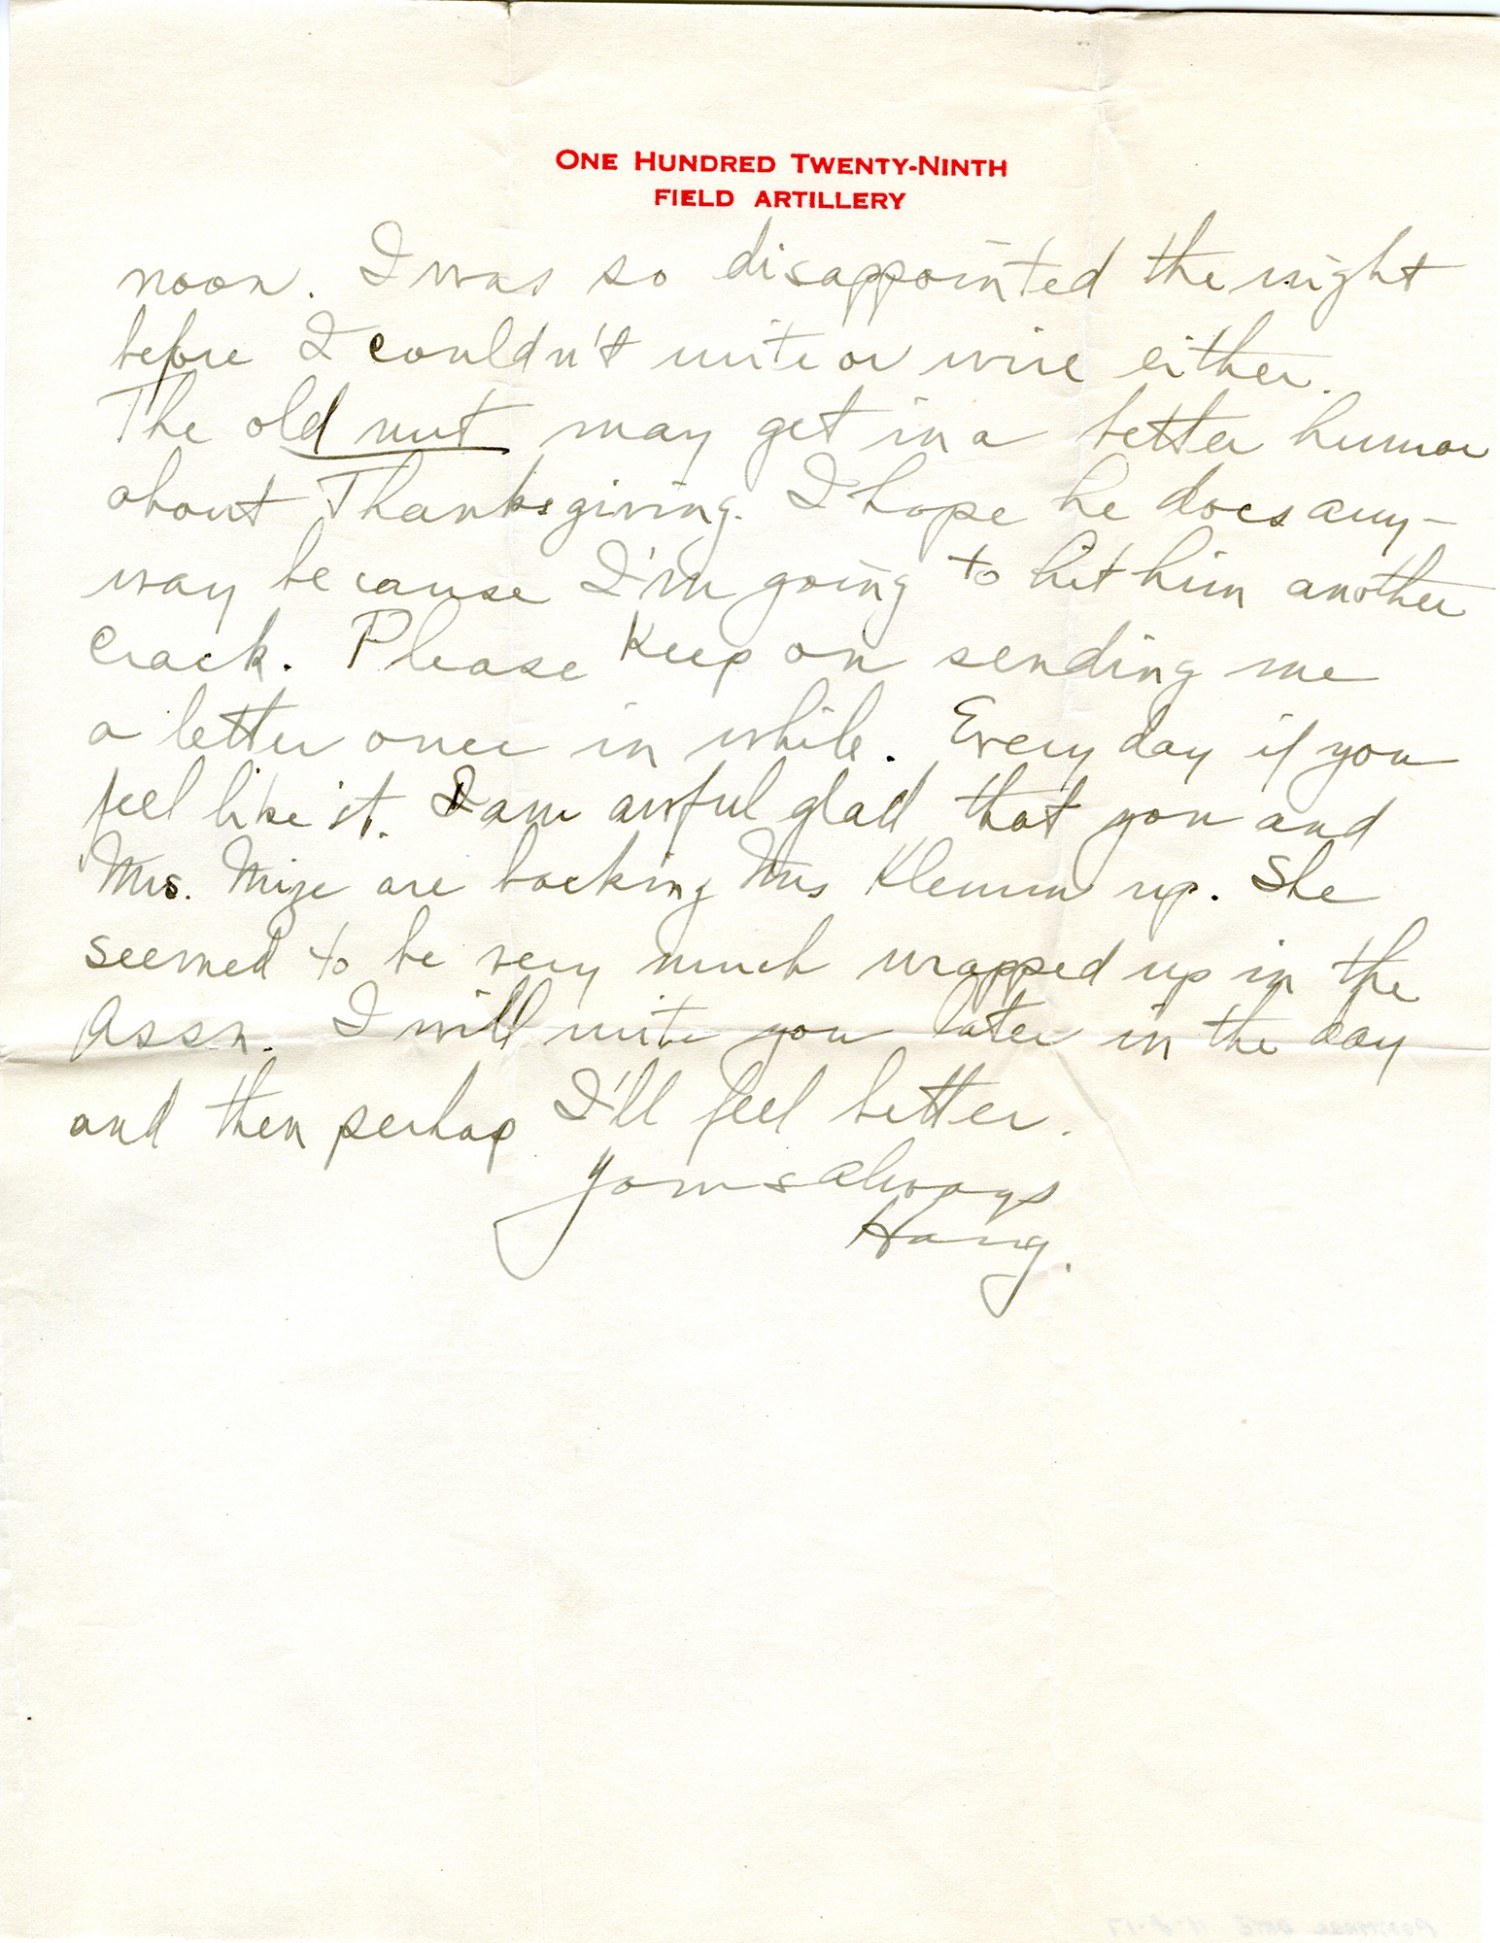 ONE HUNDRED TWENTY-NINTH
FIELD ARTILLERY
noon. I was so disappointed the night
before I couldn't write or wire either.
The old nut may get in a better humor
about Thanksgiving. I hope he does any-
way because I'm going to hit him another
crack. Please Keep on sending me
a letter once in while. Every day if you
feel like it. I am awful glad that you and
Mrs. Mize are backing Mrs Klemm up. She
seemed to be very much wrapped up in the
Assn. I will write you later in the day
and then perhap I'll feel better.
Yours always
Harry.